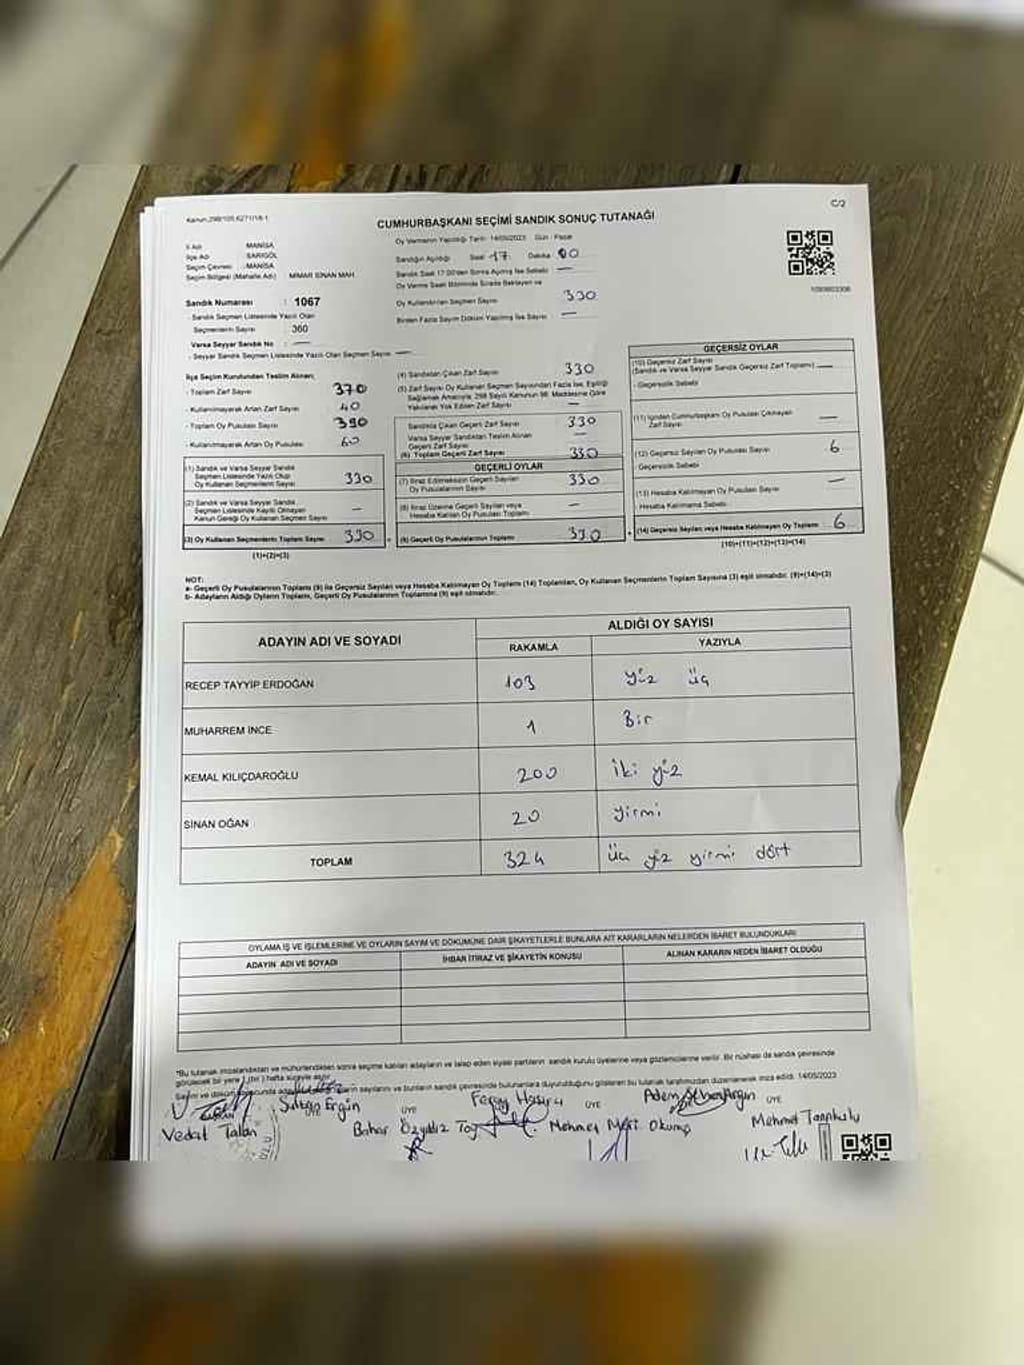 C/2
Kanun:298/105,6271/18-1
CUMHURBAŞKANI SEÇİMİ SANDIK SONUÇ TUTANAĞI
İl Adı : MANİSA
İlçe Adı : SARIGÖL
Seçim Çevresi : MANİSA
Seçim Bölgesi (Mahalle Adı) : MİMAR SİNAN MAH.
Sandık Numarası : 1067
- Sandık Seçmen Listesinde Yazılı Olan
Seçmenlerin Sayısı : 360
Varsa Seyyar Sandık No : —
- Seyyar Sandık Seçmen Listesinde Yazılı Olan Seçmen Sayısı —
Oy Vermenin Yapıldığı Tarih: 14/05/2023 Gün : Pazar
Sandığın Açıldığı Saat 17. Dakika 00
Sandık Saat 17:00'den Sonra Açılmış İse Sebebi —
Oy Verme Saati Bitiminde Sırada Bekleyen ve
Oy Kullandırılan Seçmen Sayısı 330
Birden Fazla Sayım Döküm Yapılmış İse Sayısı —
İlçe Seçim Kurulundan Teslim Alınan;
- Toplam Zarf Sayısı 370
- Kullanılmayarak Artan Zarf Sayısı 40
- Toplam Oy Pusulası Sayısı 390
- Kullanılmayarak Artan Oy Pusulası 60
(1) Sandık ve Varsa Seyyar Sandık
Seçmen Listesinde Yazılı Olup
Oy Kullanan Seçmenlerin Sayısı 330
(2) Sandık ve Varsa Seyyar Sandık
Seçmen Listesinde Kayıtlı Olmayan
Kanun Gereği Oy Kullanan Seçmen Sayısı —
(3) Oy Kullanan Seçmenlerin Toplam Sayısı 330
(1)+(2)=(3)
(4) Sandıktan Çıkan Zarf Sayısı 330
(5) Zarf Sayısı Oy Kullanan Seçmen Sayısından Fazla İse, Eşitliği
Sağlamak Amacıyla; 298 Sayılı Kanunun 98. Maddesine Göre
Yakılarak Yok Edilen Zarf Sayısı —
Sandıkta Çıkan Geçerli Zarf Sayısı 330
Varsa Seyyar Sandıktan Teslim Alınan
Geçerli Zarf Sayısı —
(6) Toplam Geçerli Zarf Sayısı 330
GEÇERLİ OYLAR
(7) İtiraz Edilmeksizin Geçerli Sayılan
Oy Pusulalarının Sayısı 330
(8) İtiraz Üzerine Geçerli Sayılan veya
Hesaba Katılan Oy Pusulası Toplamı —
(9) Geçerli Oy Pusulalarının Toplamı 330
GEÇERSİZ OYLAR
(10) Geçersiz Zarf Sayısı
(Sandık ve Varsa Seyyar Sandık Geçersiz Zarf Toplamı) —
- Geçersizlik Sebebi
(11) İçinden Cumhurbaşkanı Oy Pusulası Çıkmayan
Zarf Sayısı —
(12) Geçersiz Sayılan Oy Pusulası Sayısı 6
Geçersizlik Sebebi
(13) Hesaba Katılmayan Oy Pusulası Sayısı —
Hesaba Katılmama Sebebi
(14) Geçersiz Sayılan veya Hesaba Katılmayan Oy Toplamı 6
(10)+(11)+(12)+(13)=(14)
NOT:
a- Geçerli Oy Pusulalarının Toplamı (9) ile Geçersiz Sayılan veya Hesaba Katılmayan Oy Toplamı (14) Toplamları, Oy Kullanan Seçmenlerin Toplam Sayısına (3) eşit olmalıdır. (9)+(14)=(3)
b- Adayların Aldığı Oyların Toplamı, Geçerli Oy Pusulalarının Toplamına (9) eşit olmalıdır.
ADAYIN ADI VE SOYADI ALDIĞI OY SAYISI
RAKAMLA YAZIYLA
RECEP TAYYİP ERDOĞAN 103 yüz üç
MUHARREM İNCE 1 Bir
KEMAL KILIÇDAROĞLU 200 iki yüz
SİNAN OĞAN 20 yirmi
TOPLAM 324 üç yüz yirmi dört
OYLAMA İŞ VE İŞLEMLERİNE VE OYLARIN SAYIM VE DÖKÜMÜNE DAİR ŞİKAYETLERLE BUNLARA AİT KARARLARIN NELERDEN İBARET BULUNDUKLARI
ADAYIN ADI VE SOYADI İHBAR İTİRAZ VE ŞİKAYETİN KONUSU ALINAN KARARIN NEDEN İBARET OLDUĞU
*Bu tutanak imzalandıktan ve mühürlendikten sonra seçime katılan adayların ve talep eden siyasi partilerin sandık kurulu üyelerine veya gözlemcilerine verilir. Bir nüshası da sandık çevresinde
görülecek bir yere 1 (bir) hafta süreyle asılır.
sayılarını ve bunların sandık çevresinde bulunanlara duyurulduğunu gösteren bu tutanak tarafımızdan düzenlenerek imza edildi. 14/05/2023
Sultan Ergin Adem
Vedat Talan ÜYE Bahar Özyıldız ÜYE Mehmet Okumuş ÜYE Mehmet